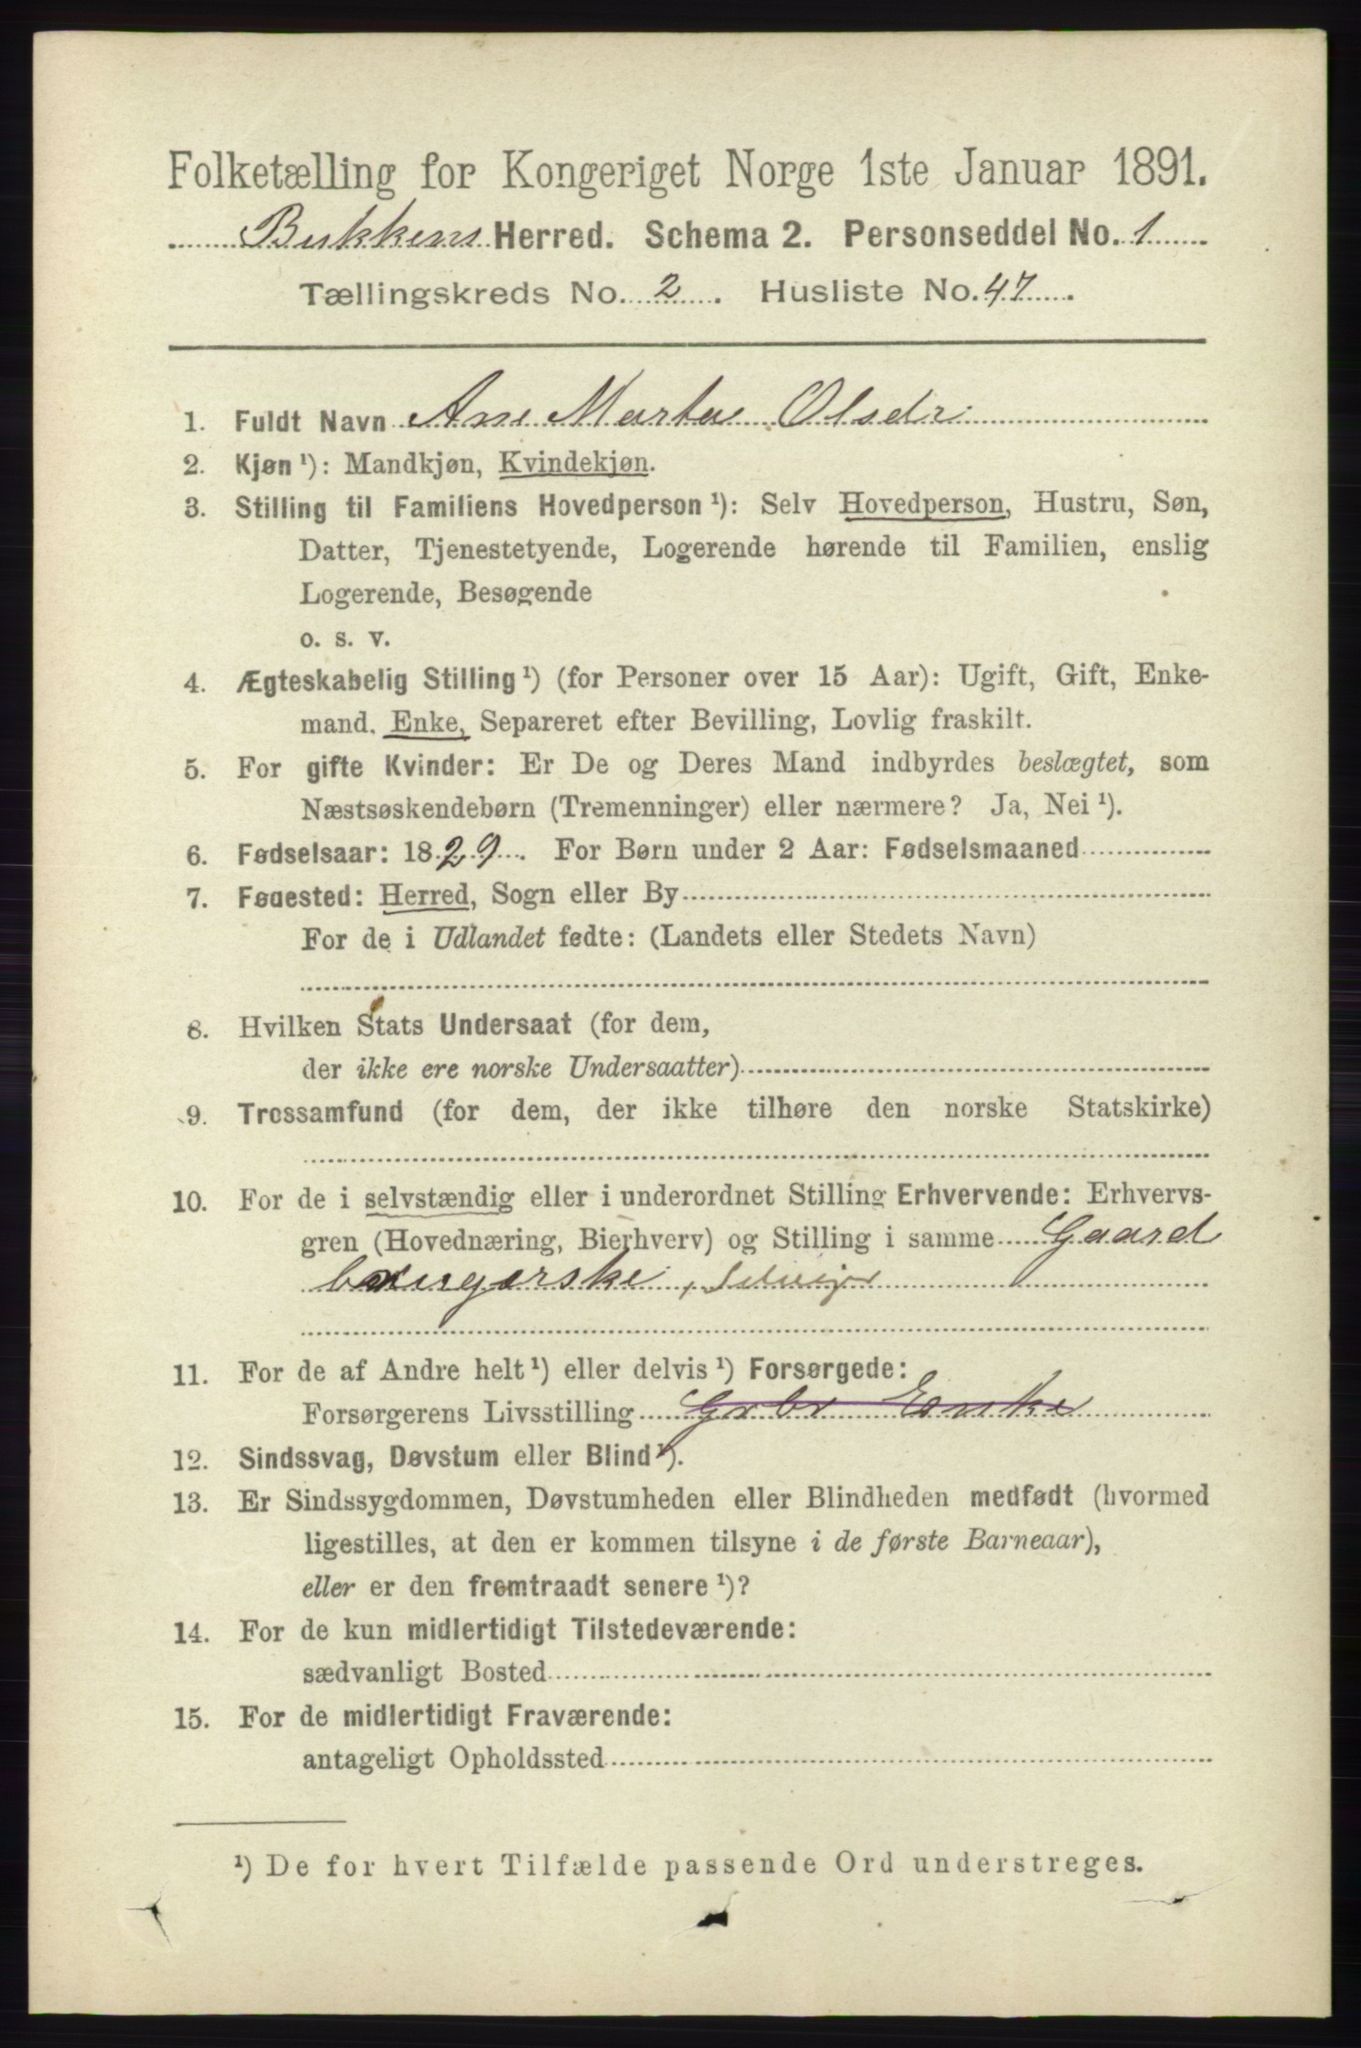 Folketælling for Kongeriget Norge 1ste Januar 1891.
Bukkens Herred. Schema 2. Personseddel No. 1
Tællingskreds No. 2. Husliste No. 47.
1. Fuldt Navn Ane Marta Olsdr.
2. Kjøn ¹): Mandkjøn, Kvindekjøn.
3. Stilling til Familiens Hovedperson ¹): Selv Hovedperson, Hustru, Søn,
Datter, Tjenestetyende, Logerende hørende til Familien, enslig
Logerende, Besøgende
o. s. v.
4. Ægteskabelig Stilling ¹) (for Personer over 15 Aar): Ugift, Gift, Enke-
mand, Enke, Separeret efter Bevilling, Lovlig fraskilt.
5. For gifte Kvinder: Er De og Deres Mand indbyrdes beslægtet, som
Næstsøskendebørn (Tremenninger) eller nærmere? Ja, Nei ¹).
6. Fødselsaar: 1829. For Børn under 2 Aar: Fødselsmaaned
7. Fødested: Herred, Sogn eller By
For de i Udlandet fødte: (Landets eller Stedets Navn)
8. Hvilken Stats Undersaat (for dem,
der ikke ere norske Undersaatter)
9. Trossamfund (for dem, der ikke tilhøre den norske Statskirke)
10. For de i selvstændig eller i underordnet Stilling Erhvervende: Erhvervs-
gren (Hovednæring, Bierhverv) og Stilling i samme Gaard
brugerske, Selveier
11. For de af Andre helt ¹) eller delvis ¹) Forsørgede:
Forsørgerens Livsstilling Grbr Enke
12. Sindssvag, Døvstum eller Blind ¹).
13. Er Sindssygdommen, Døvstumheden eller Blindheden medfødt (hvormed
ligestilles, at den er kommen tilsyne i de første Barneaar),
eller er den fremtraadt senere ¹)?
14. For de kun midlertidigt Tilstedeværende:
sædvanligt Bosted
15. For de midlertidigt Fraværende:
antageligt Opholdssted
¹) De for hvert Tilfælde passende Ord understreges.